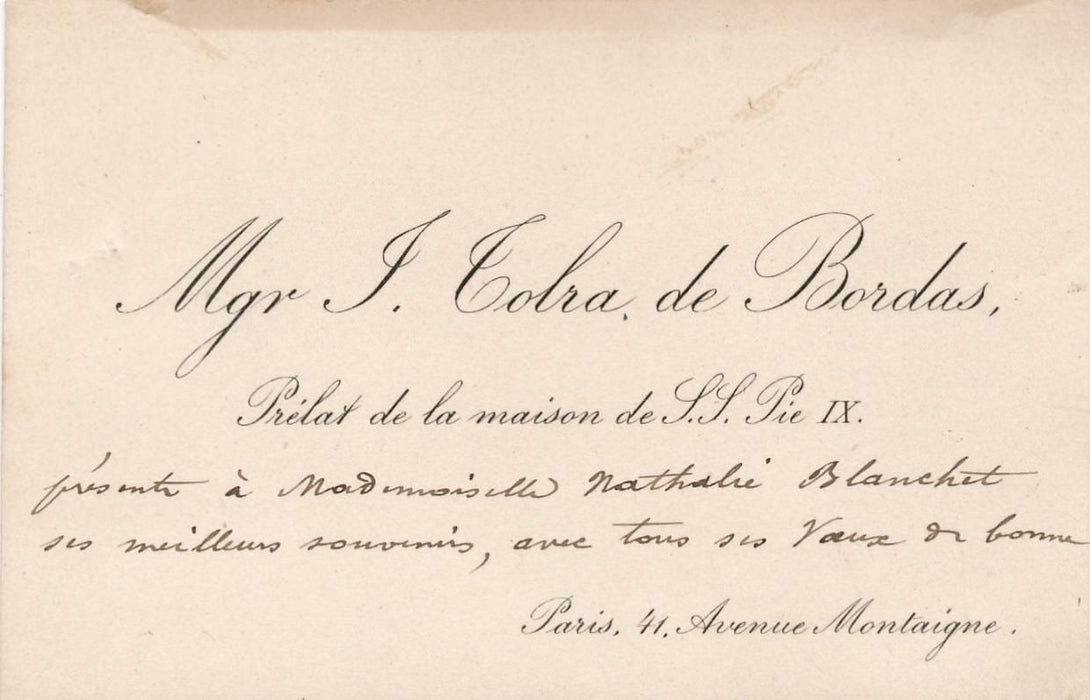 Mgr J. Tolra de Bordas,
Prélat de la maison de S.S. Pie IX.
présente à Mademoiselle Nathalie Blanchet
ses meilleurs souvenirs, avec tous ses Vœux de bonne
Paris, 41, Avenue Montaigne.